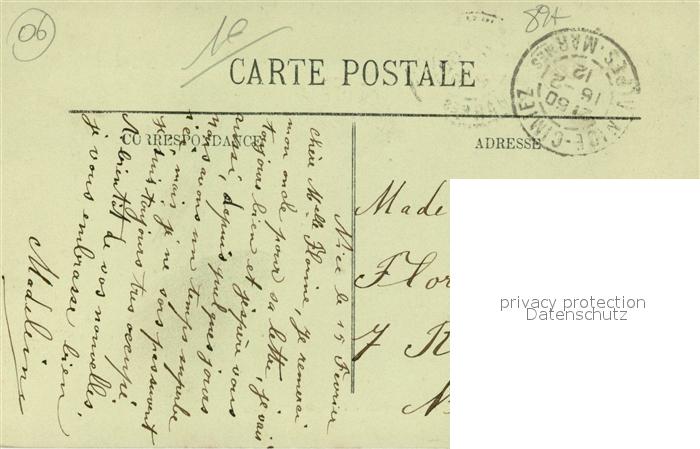 06
10
894
CARTE POSTALE
NICE-CIMIEZ
ALPES-MARMES
CORRESPONDANCE
ADRESSE
Nice le 15 Février
Chère Melle Florine, je remerci
mon oncle pour sa lettre, je vais
toujours bien et j'espère vous
aussi, depuis quelques jours
nous avons un temps superbe
ici, mais je ne sors pas souvent
je suis toujours très occupé
A bientôt de vos nouvelles,
je vous embrasse bien
Madeleine
Made
Flor
7 R
N
privacy protection
Datenschutz